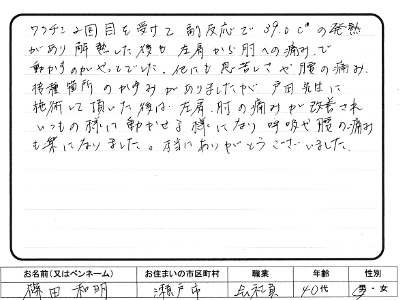 ワクチン2回目を受けて 副反応で 39.0℃の発熱
があり 解熱した後も 左肩から肘への痛みで
動かすのがやってでした。他にも 息苦しさや腰の痛み、
接種箇所のかゆみがありましたが 戸田先生に
施術して頂いた後は 左肩、肘の痛みが改善され
いつもの様に動かせる様になり 呼吸や腰の痛み
も楽になりました。本当にありがとうございました。
お名前(又はペンネーム) お住まいの市区町村 職業 年齢 性別
篠田 和明 瀬戸市 会社員 40代 男・女